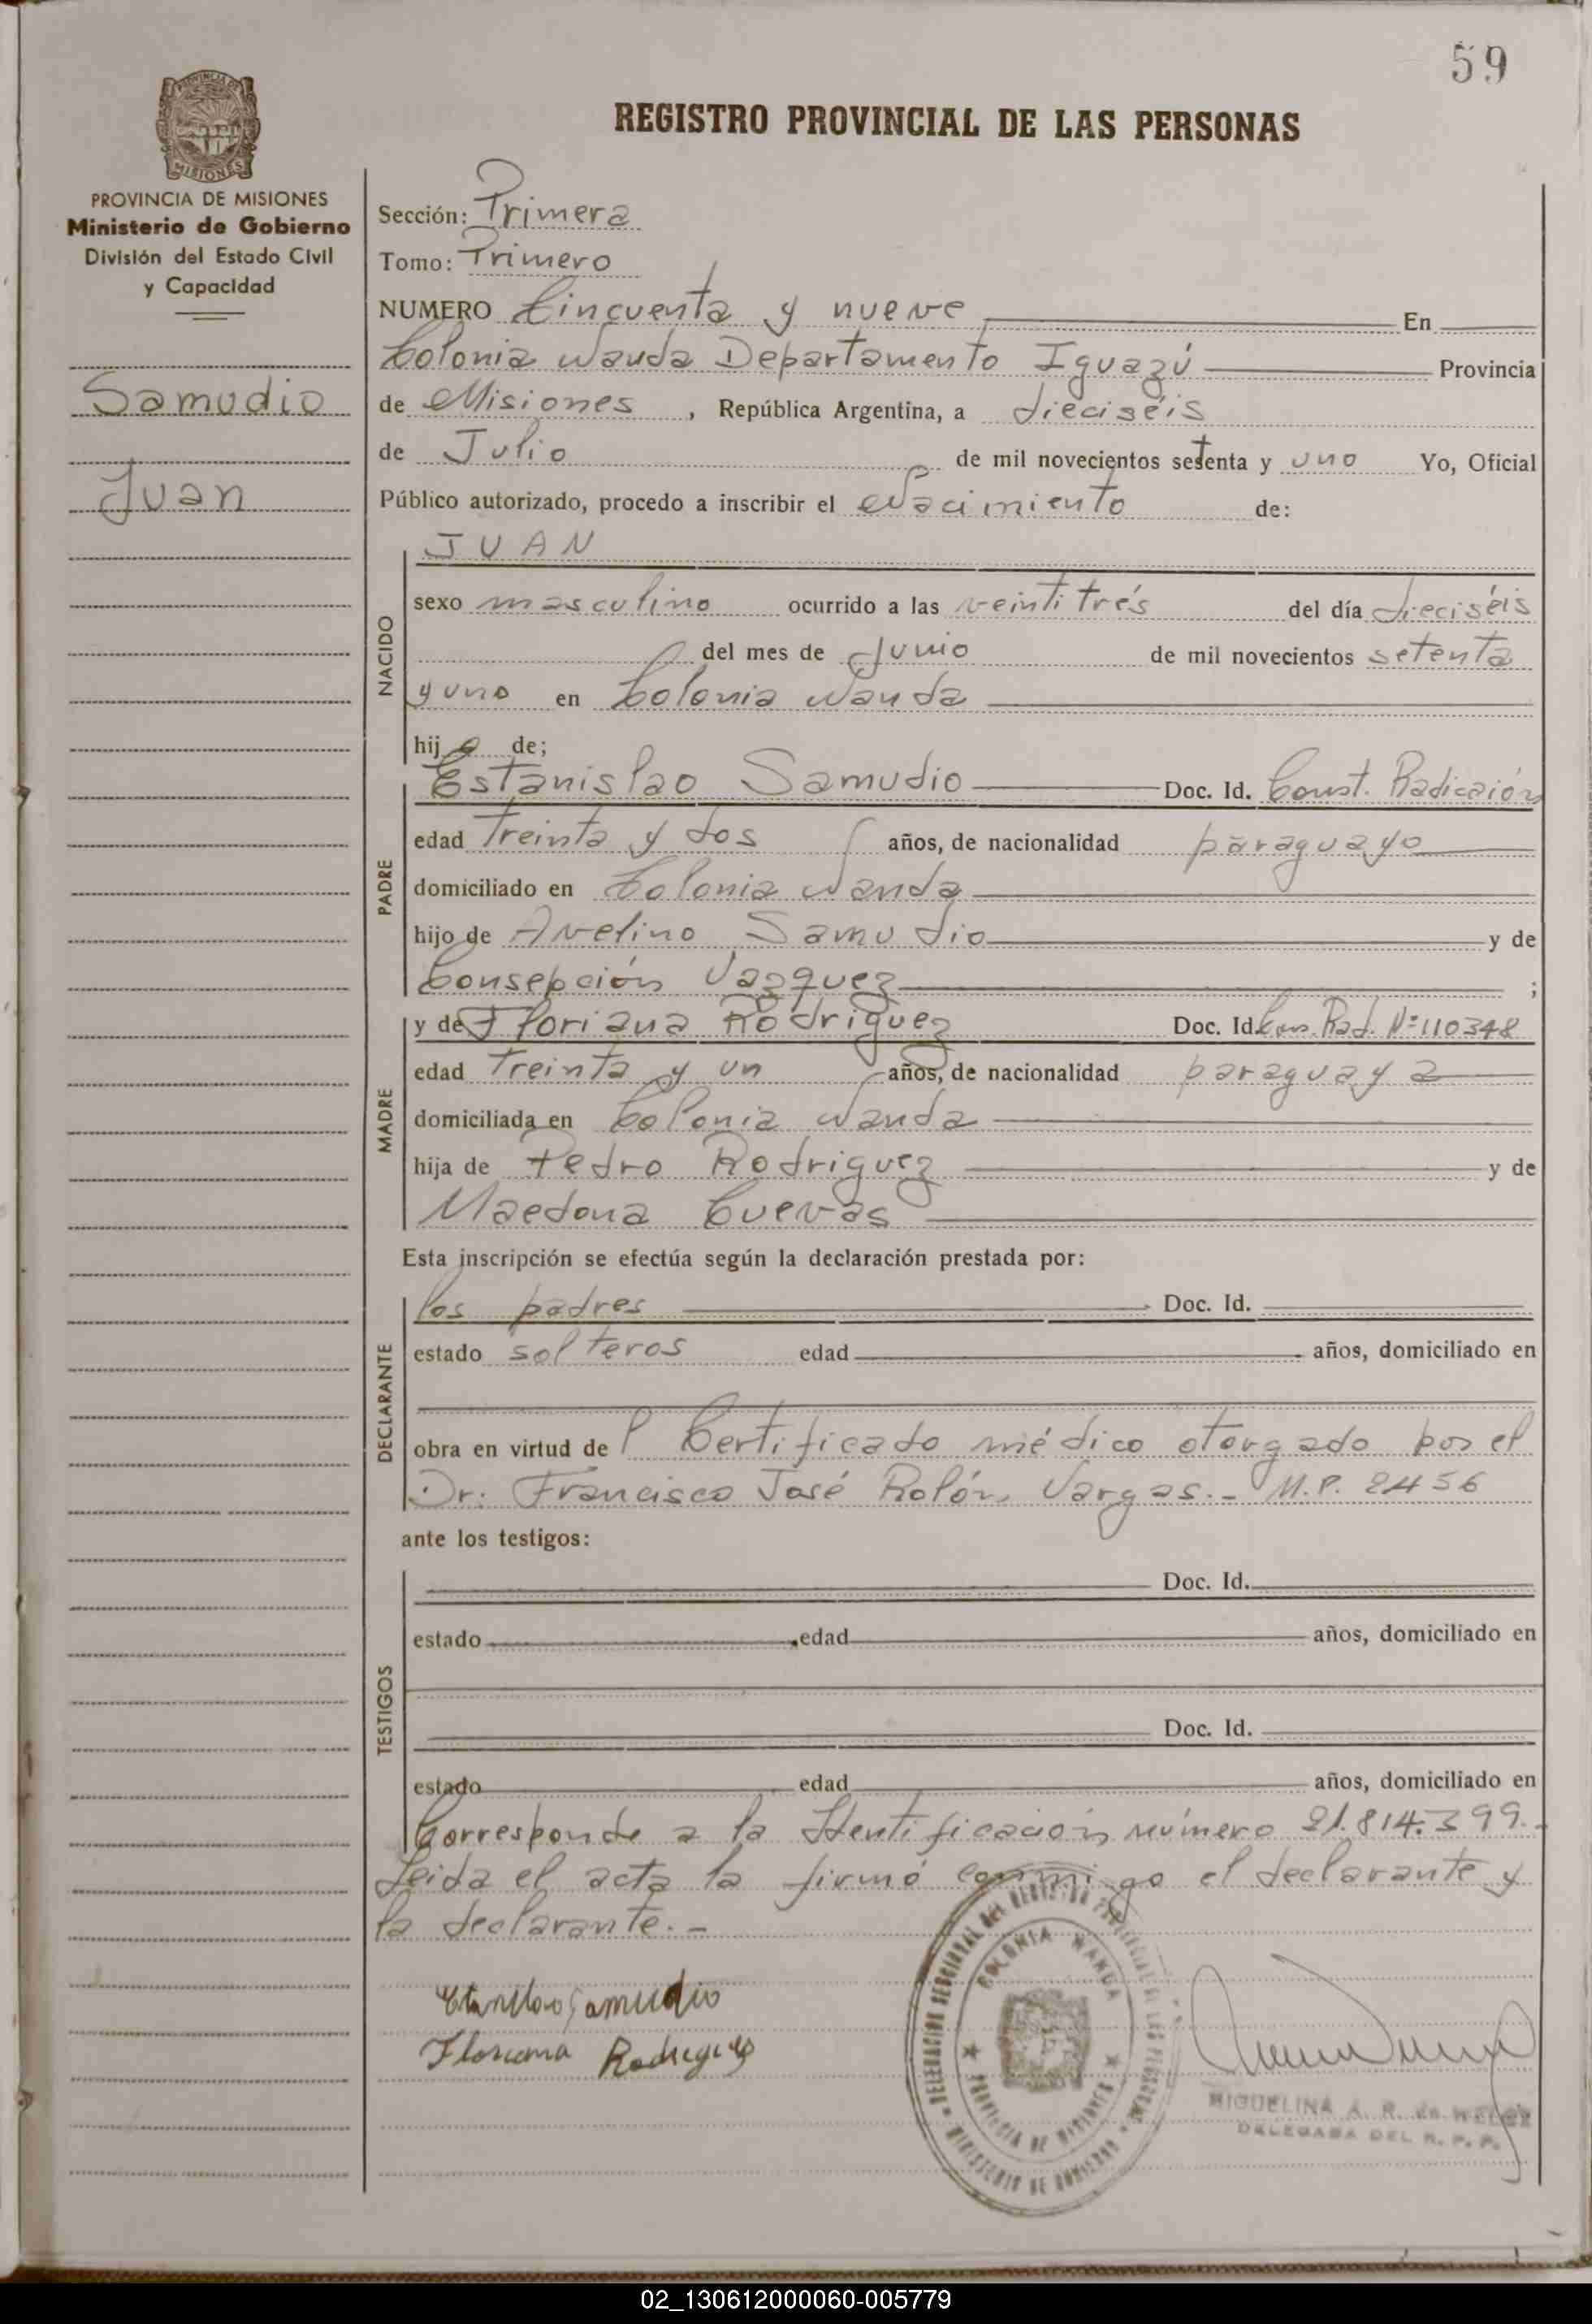 59
REGISTRO PROVINCIAL DE LAS PERSONAS
PROVINCIA DE MISIONES
Ministerio de Gobierno
División del Estado Civil
y Capacidad
Samudio
Juan
Sección: Primera
Tomo: Primero
NUMERO Cincuenta y nueve En
Colonia Wanda Departamento Iguazú Provincia
de Misiones, República Argentina, a dieciséis
de Julio de mil novecientos setenta y uno Yo, Oficial
Público autorizado, procedo a inscribir el Nacimiento de:
NACIDO
JUAN
sexo masculino ocurrido a las veintitrés del día dieciséis
del mes de Junio de mil novecientos setenta
y uno en Colonia Wanda
hijo de;
PADRE
Estanislao Samudio Doc. Id. Const. Radicación
edad treinta y dos años, de nacionalidad paraguayo
domiciliado en Colonia Wanda
hijo de Avelino Samudio y de
Consepción Vazquez ;
MADRE
y de Floriana Rodriguez Doc. Id. Con. Rad. Nº 110348
edad treinta y un años, de nacionalidad paraguaya
domiciliada en Colonia Wanda
hija de Pedro Rodriguez y de
Maedona Cuevas
Esta inscripción se efectúa según la declaración prestada por:
DECLARANTE
los padres Doc. Id.
estado solteros edad años, domiciliado en
obra en virtud del Certificado médico otorgado por el
Dr. Francisco José Rolón Vargas.- M.P. 2456
ante los testigos:
TESTIGOS
Doc. Id.
estado edad años, domiciliado en
Doc. Id.
estado edad años, domiciliado en
Corresponde a la Identificación número 21.814.399.-
Leida el acta la firmó conmigo el declarante y
la declarante.-
Samudio
Floriana Rodriguez
COLONIA WANDA
PROVINCIA DE MISIONES
MINISTERIO DE GOBIERNO
MIGUELINA A. R. de
DELEGADA DEL R. P. P.
02_130612000060-005779